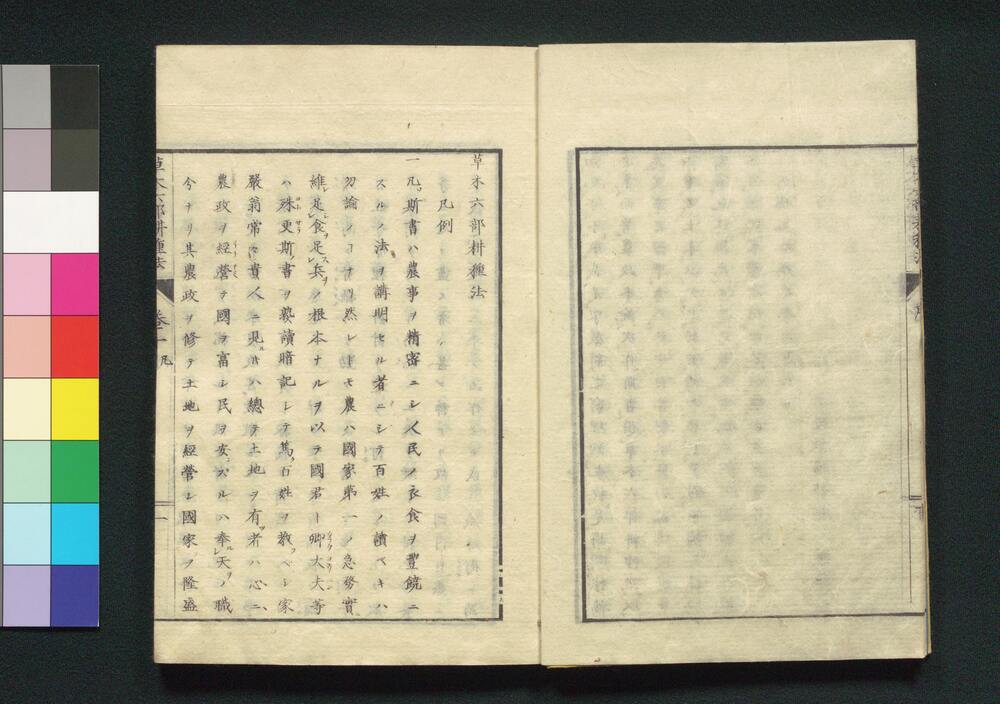 草木六部耕種法
凡例
一凡斯書ハ農事ヲ精密ニシ人民ノ衣食ヲ豐饒ニ
スルノ法ヲ講明セル者ニシテ百姓ノ讀ベキハ
勿論ノコナリ然レトモ農ハ國家第一ノ急務實
維足食足兵ノ根本ナルヲ以テ國君卿大夫等
ハ殊更斯書ヲ熟讀暗記シテ萬百姓ヲ教ベシ家
嚴翁常ニ貴人ニ見ルハ總テ土地ヲ有者ハ心ニ
農政ヲ經營テ國ヲ富シ民ヲ安ズルハ奉天ノ職
今ヨリ其農政ヲ修テ土地ヲ經營シ國家ノ隆盛
草木六部耕種法
卷一
凡
一